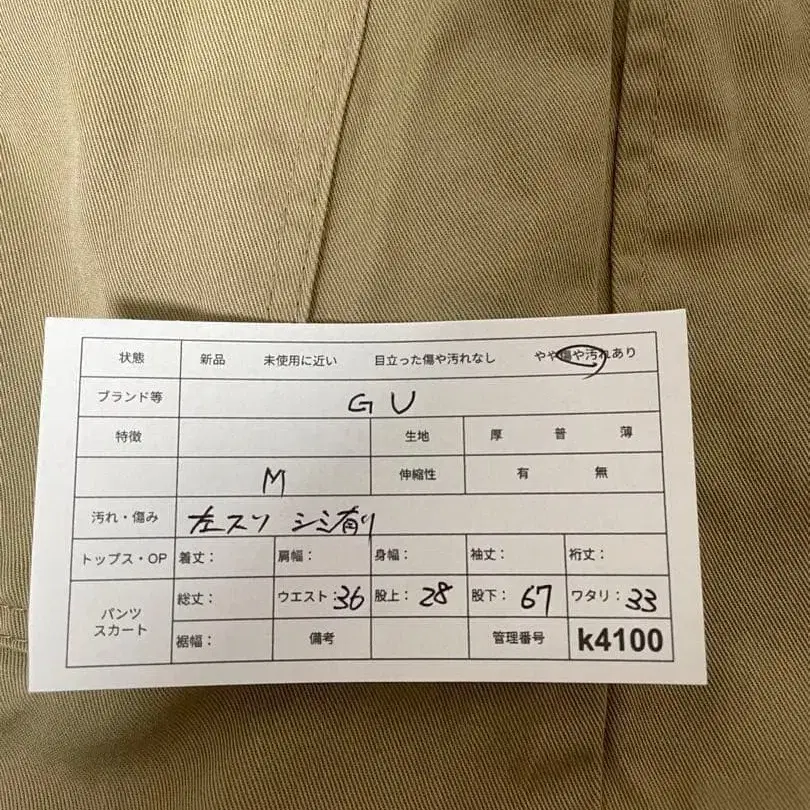 状態 新品 未使用に近い 目立った傷や汚れなし やや傷や汚れあり
ブランド等 GU
特徴 生地 厚 普 薄
M 伸縮性 有 無
汚れ・傷み 左スソ シミ有り
トップス・OP 着丈： 肩幅： 身幅： 袖丈： 裄丈：
パンツ スカート 総丈： ウエスト：36 股上：28 股下：67 ワタリ：33
裾幅： 備考 管理番号 k4100